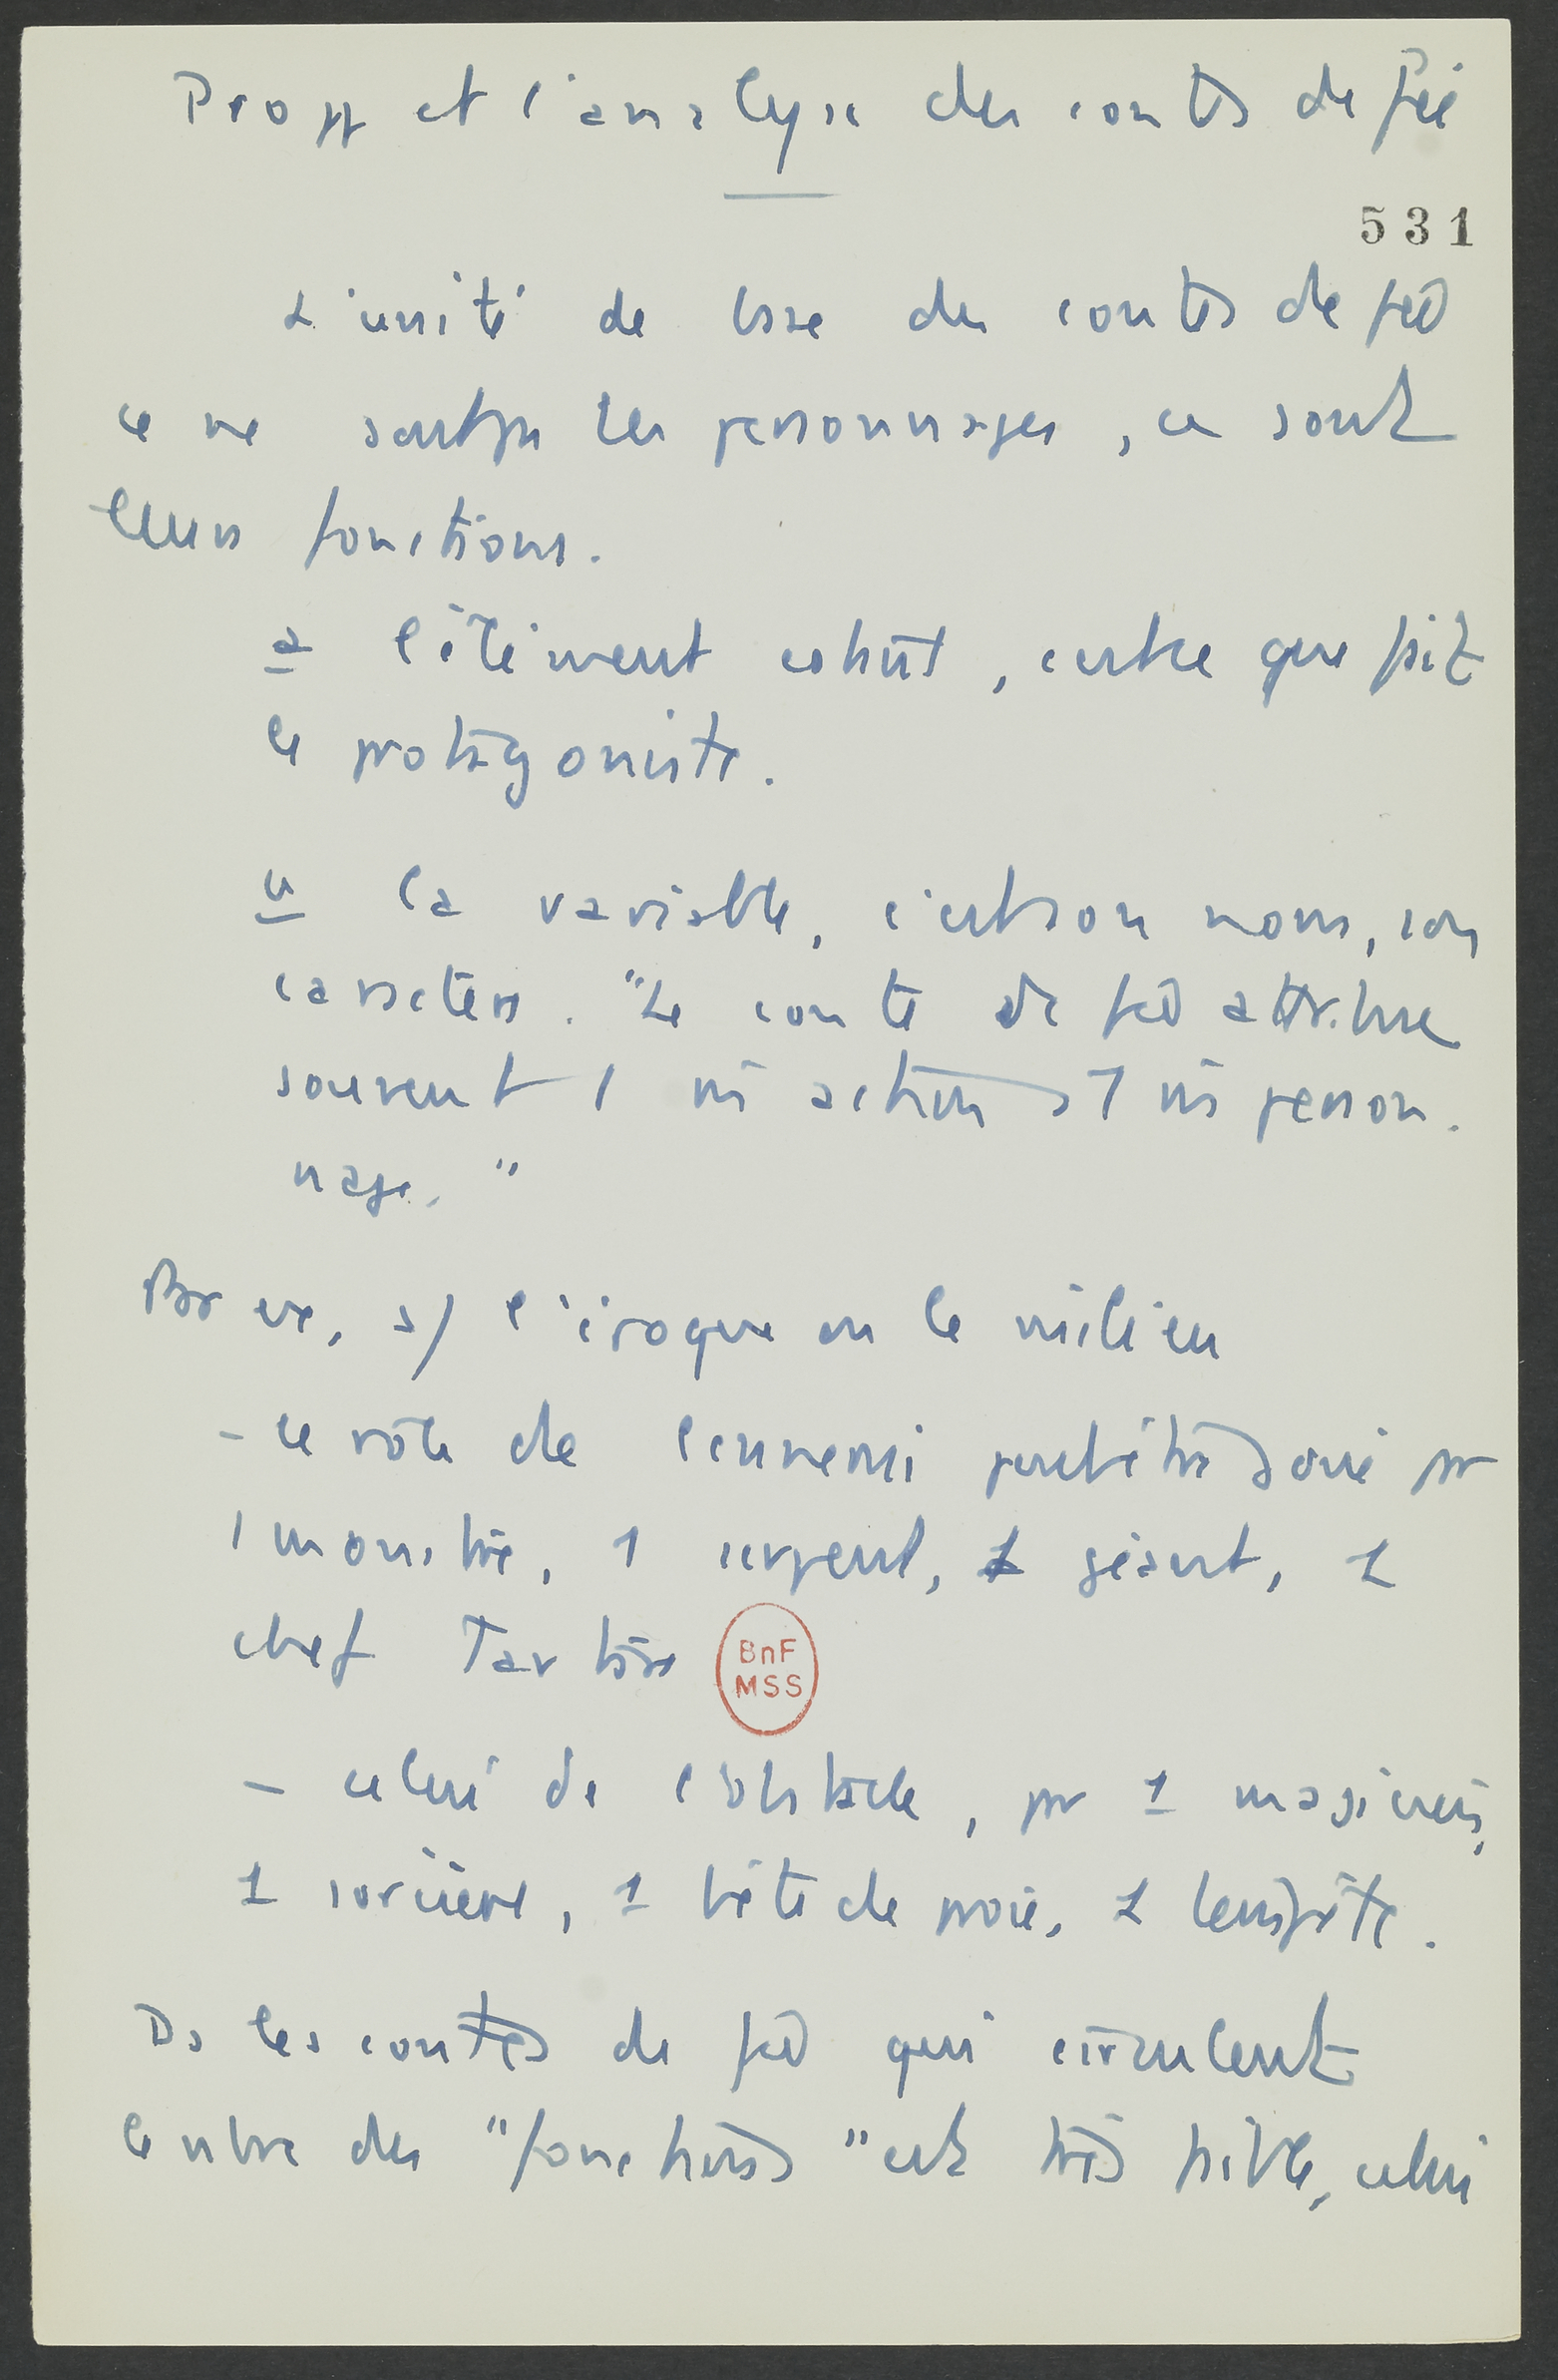 Propp et l'analyse des contes de fée
531
L'unité de base des contes de fées
ce ne sont pas les personnages, ce sont
leurs fonctions.
a l'élément constant, c'est ce que fait
le protagoniste.
b la variable, c'est son nom, son
caractère. "Le conte de fées attribue
souvent 1 m̂ action à 7 m̂ person-
nage."
Par ex, s/ l'époque ou le milieu
- le rôle de l'ennemi peut être joué pr
1 monstre, 1 serpent, 1 géant, 1
chef Tartare
BnF
MSS
- celui de l'obstacle, pr 1 magicien,
1 sorcière, 1 bête de proie, 1 tempête.
Ds les contes de fées qui circulent
le nbre des "fonctions" est très faible, celui